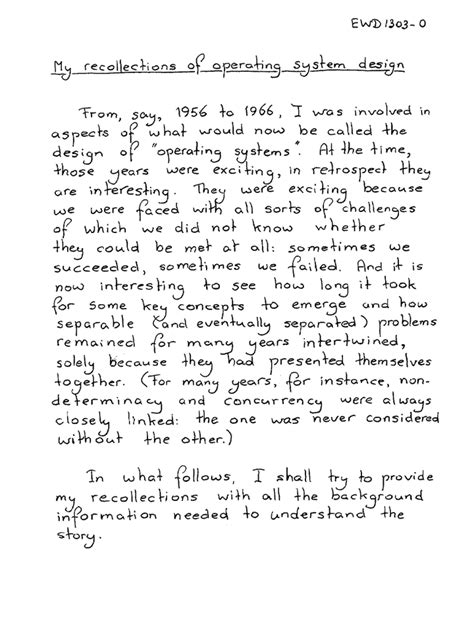 EWD1303-0
My recollections of operating system design
From, say, 1956 to 1966, I was involved in
aspects of what would now be called the
design of "operating systems". At the time,
those years were exciting, in retrospect they
are interesting. They were exciting because
we were faced with all sorts of challenges
of which we did not know whether
they could be met at all: sometimes we
succeeded, sometimes we failed. And it is
now interesting to see how long it took
for some key concepts to emerge and how
separable (and eventually separated) problems
remained for many years intertwined,
solely because they had presented themselves
together. (For many years, for instance, non-
determinacy and concurrency were always
closely linked: the one was never considered
without the other.)
In what follows, I shall try to provide
my recollections with all the background
information needed to understand the
story.